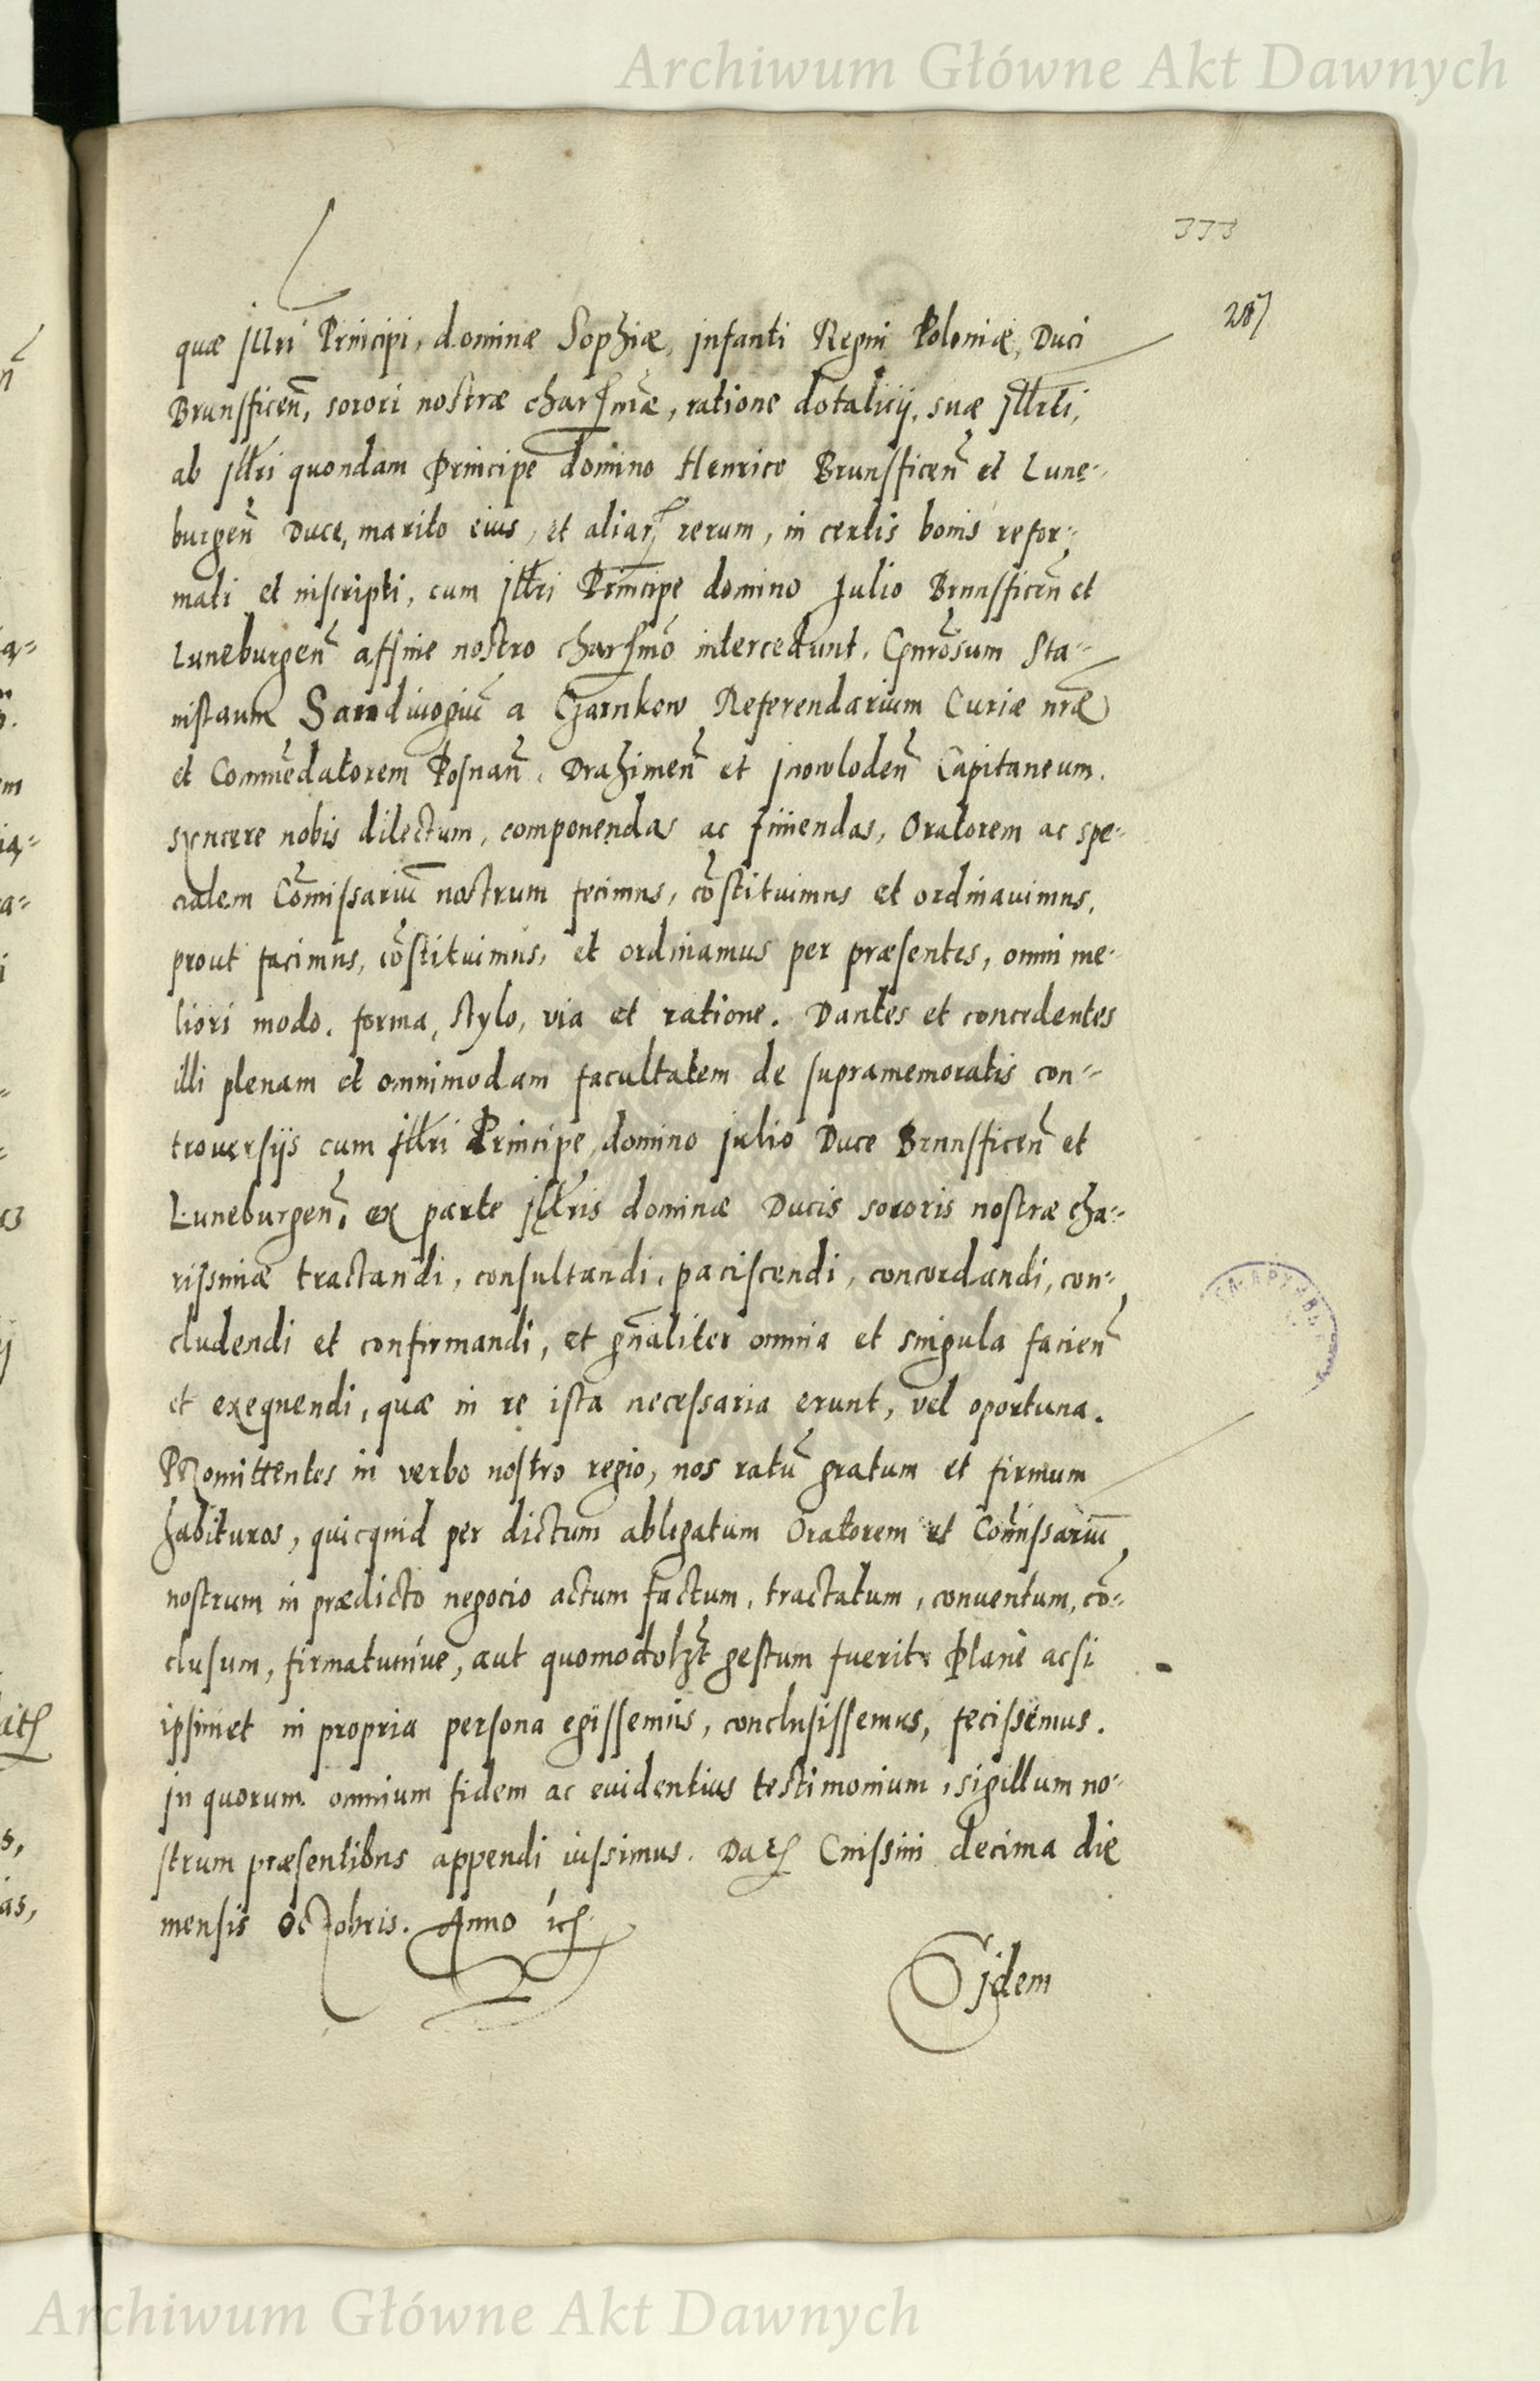 Archiwum Główne Akt Dawnych
333
287
quæ jllri Principi, dominæ Sophiæ, jnfanti Regni Poloniæ, Duci
Brunsficen̄, sorori nostræ char̄mæ, ratione dotalicij, suæ jllrti,
ab jllri quondam Principe domino Henrico Brunsficen̄ et Lune-
burgen̄ Duce, marito eius, et aliar̄ rerum, in certis bonis refor-
mati et inscripti, cum jllri Principe domino Julio Brunsficen̄ et
Luneburgen̄ affine nostro char̄mo intercedunt, Gnrōsum Sta-
nislaum Sandiuogiū a Czarnkow Referendarium Curiæ nr̄æ
et Commēdatorem Posnan̄, Drahimen̄ et jnowloden̄ Capitaneum,
syncere nobis dilectum, componendas ac finiendas, Oratorem ac spe-
cialem Cōmissariū nostrum fecimus, cōstituimus et ordinauimus,
prout facimus, cōstituimus, et ordinamus per præsentes, omni me-
liori modo, forma, stylo, via et ratione. Dantes et concedentes
illi plenam et omnimodam facultatem de supramemoratis con-
trouersijs cum jllri Principe, domino julio Duce Brunsficen̄ et
Luneburgen̄, ex parte jllris dominæ Ducis sororis nostræ cha-
rissimæ tractandi, consultandi, paciscendi, concordandi, con-
cludendi et confirmandi, et gn̄aliter omnia et singula facien̄
et exequendi, quæ in re ista necessaria erunt, vel oportuna.
Promittentes in verbo nostro regio, nos ratū gratum et firmum
habituros, quicquid per dictum ablegatum Oratorem et Com̄issariū
nostrum in prædicto negocio actum factum, tractatum, conuentum, cō-
clusum, firmatumue, aut quomodolz̄t gestum fuerit, Planè acsi
ipsimet in propria persona egissemus, conclusissemus, fecissemus.
jn quorum omnium fidem ac euidentius testimonium, sigillum no-
strum præsentibus appendi iussimus. Dat̄ Cnissini decima die
mensis Octobris. Anno ut ſ.
Eidem
Archiwum Główne Akt Dawnych